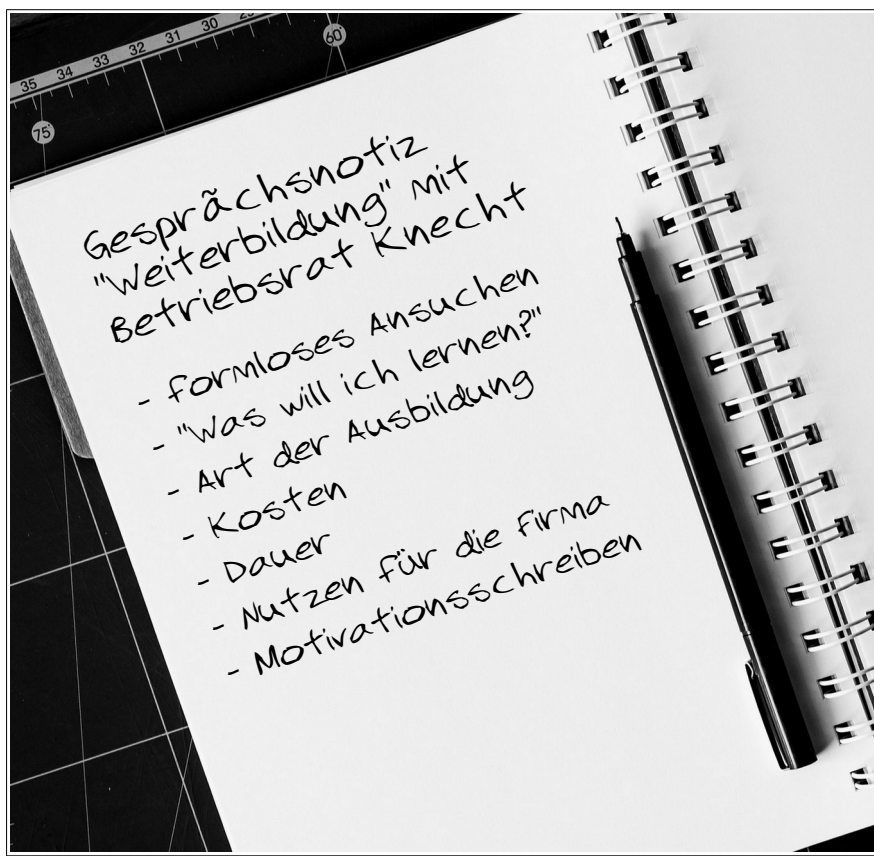 35 34 33 32 31 30
60°
75°
Gesprãchsnotiz
"Weiterbildung" mit
Betriebsrat Knecht
- formloses Ansuchen
- "Was will ich lernen?"
- Art der Ausbildung
- Kosten
- Dauer
- Nutzen für die Firma
- Motivationsschreiben